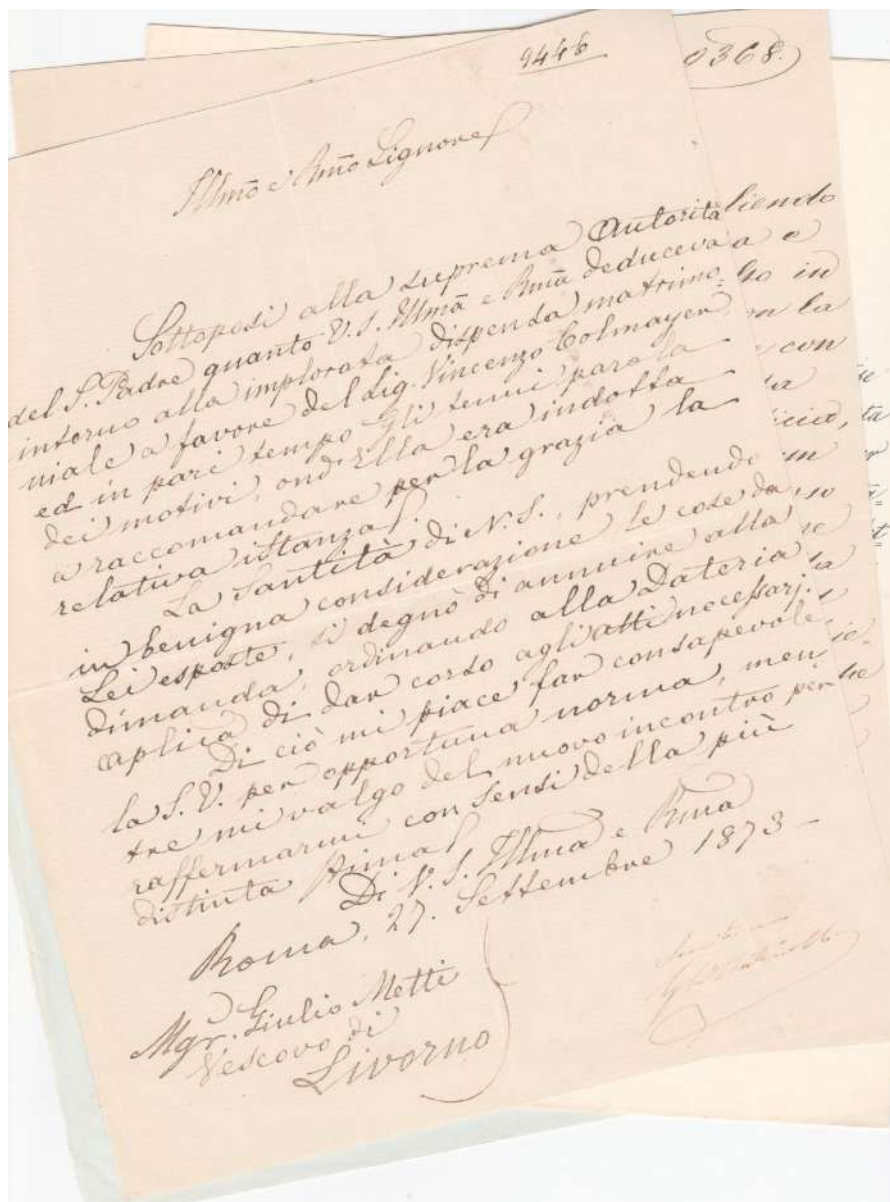 9446
Illmo e Rmo Signore
Sottoposi alla suprema Autorità
del S. Padre quanto V. S. Illma e Rma deduceva
intorno alla implorata dispensa matrimo=
niale a favore del Sig. Vincenzo Colmayer,
ed in pari tempo gli tenni parola
dei motivi, ond'Ella era indotta
a raccomandare per la grazia la
relativa istanza.
La Santità di N. S., prendendo
in benigna considerazione le cose da
Lei esposte, si degnò di annuire alla
dimanda, ordinando alla Dateria
aplica di dar corso agli atti necessarj.
Di ciò mi piace far consapevole
la S. V. per opportuna norma, men
tre mi valgo del nuovo incontro per
raffermarmi con sensi della più
distinta stima
Di V. S. Illma e Rma
Roma, 27. Settembre 1873 -
Mgr. Giulio Metti
Vescovo di
Livorno
0368.
liendo
a e
go in
la
con